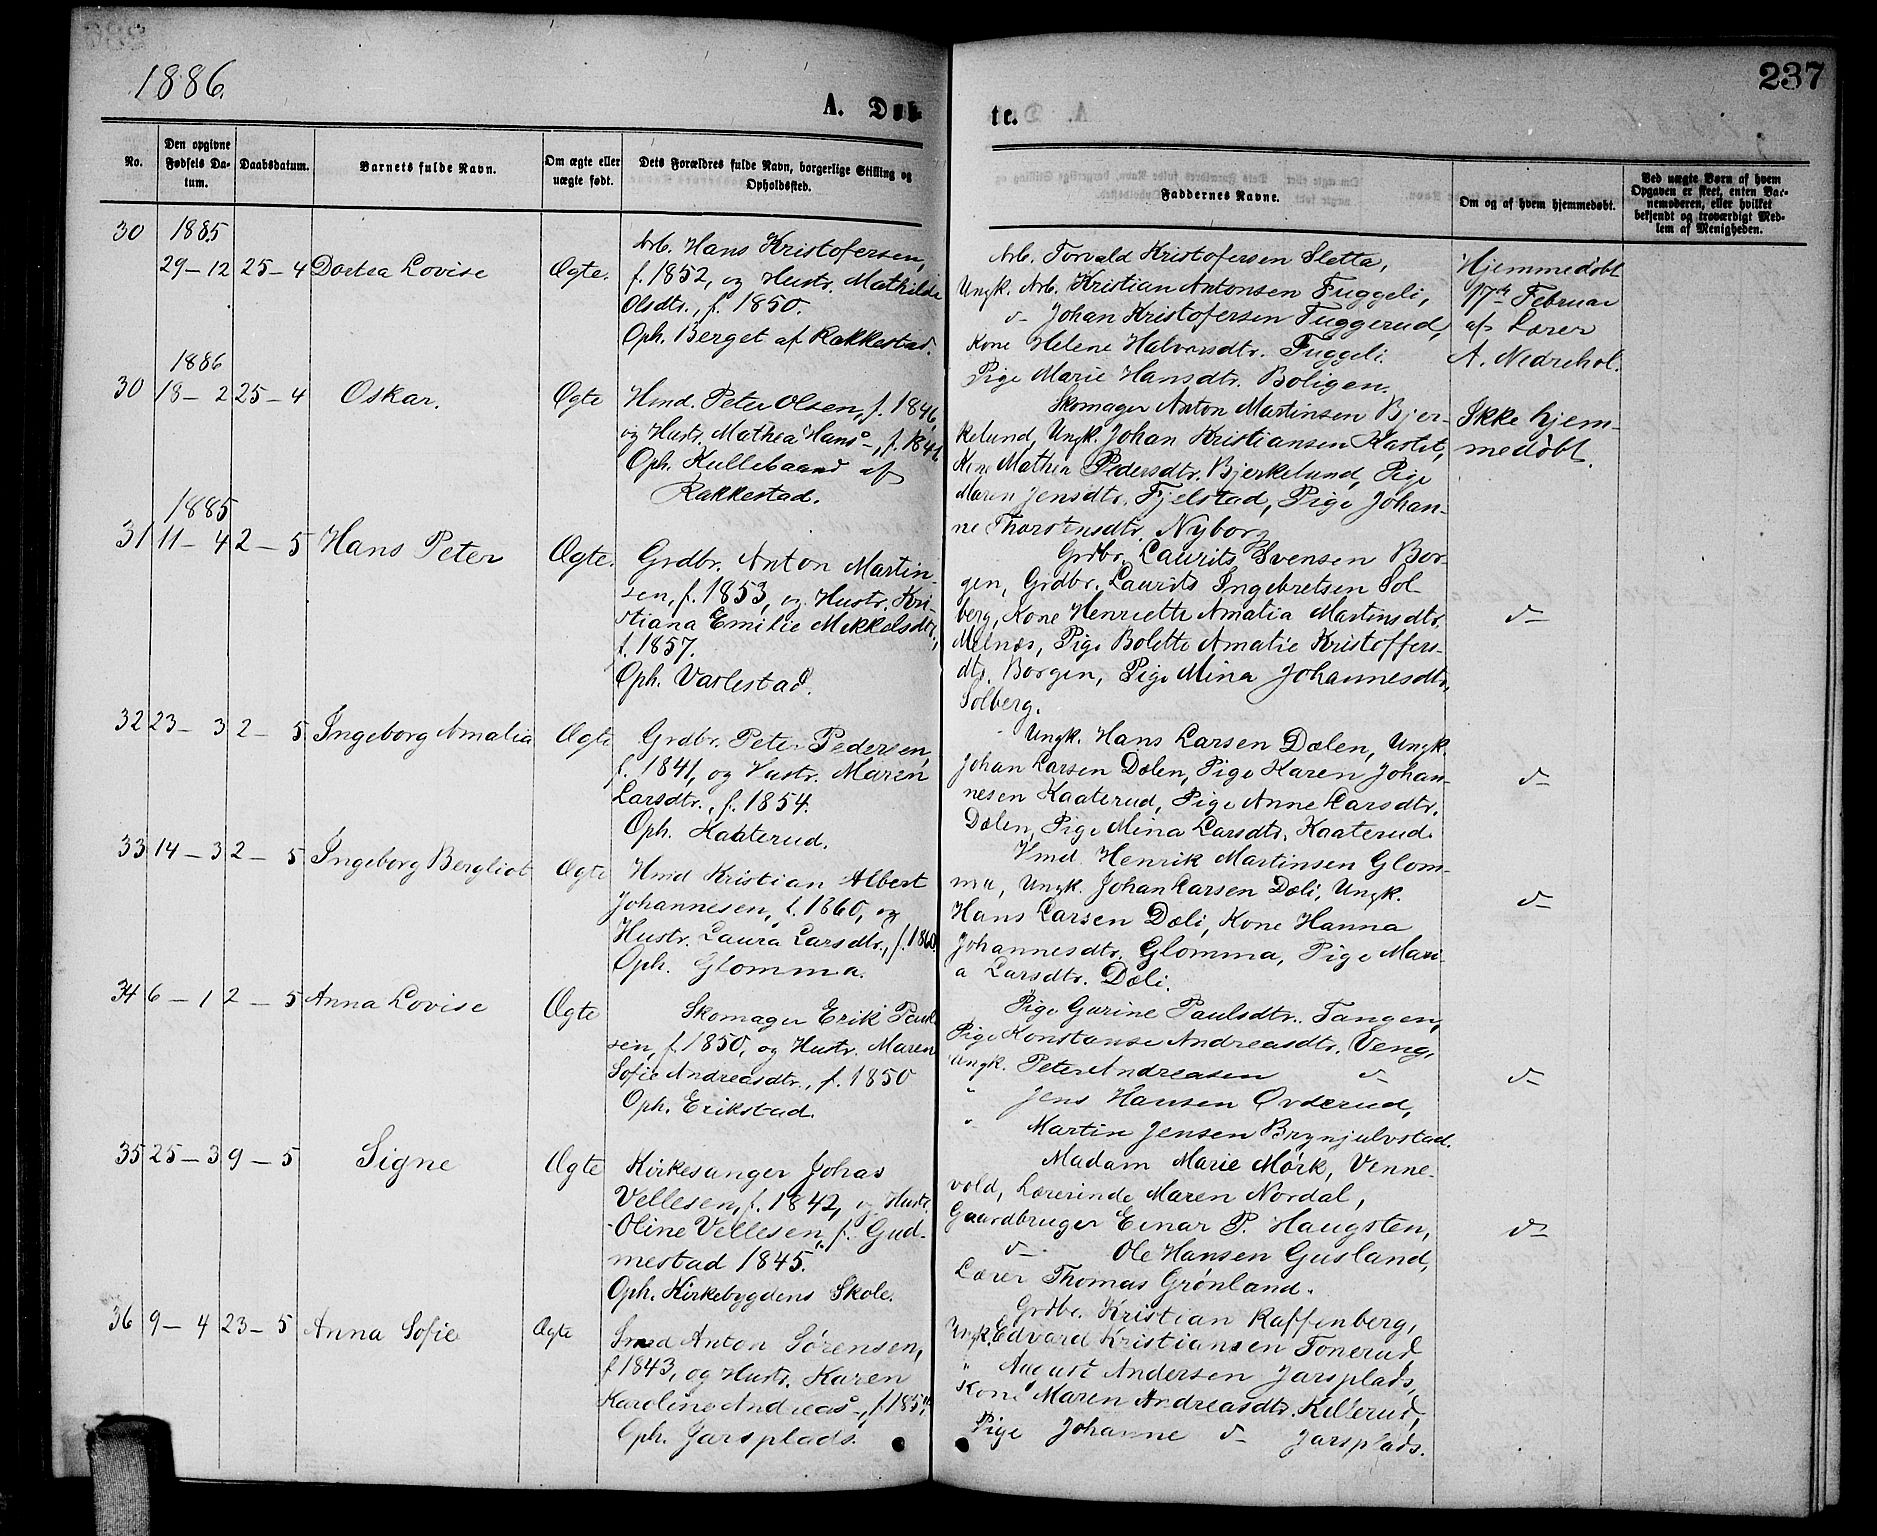 1886.
237
A. Døb-
te.
No.
Den opgivne Fødsels Datum.
Daabsdatum.
Barnets fulde Navn.
Om ægte eller uægte født.
Dets Forældres fulde Navn, borgerlige Stilling og Opholdssted.
Faddernes Navne.
Om og af hvem hjemmedøbt.
Ved uægte Børn af hvem Opgaven er skeet, enten Barnemoderen, eller hvilket bekjendt og troværdigt Medlem af Menigheden.
30
1885
29-12
25-4
Dortea Lovise
Ægte.
Arb. Hans Kristofersen,
f. 1852, og Hustr. Mathilde
Olsdtr., f. 1850.
Oph. Berget af Rakkestad.
Arb. Torvald Kristofersen Sletta,
Ungk. Arb. Kristian Antonsen Fuggeli,
d- Johan Kristofersen Fuggerud,
Kone Helene Halvorsdtr. Fuggeli.
Pige Marie Hansdtr. Boligen.
Hjemmedøbt
17de Februar
af Lærer
A. Nedrehol.
30
1886
18-2
25-4
Oskar.
Ægte
Hmd. Peter Olsen, f. 1846,
og Hustr. Mathea Hans-, f. 1841.
Oph. Kullebaand af
Rakkestad.
Skomager Anton Martinsen Bjer-
kelund, Ungk. Johan Kristiansen Kastet,
Kone Mathea Pedersdtr. Bjerkelund, Pige
Maren Jensdtr. Fjelstad, Pige Johan-
ne Thorstensdtr. Nyborg
Ikke hjem-
medøbt.
31
1885
11-4
2-5
Hans Peter
Ægte.
Grdbr. Anton Martin-
sen, f. 1853, og Hustr. Kri-
stiana Emilie Mikkelsdtr.,
f. 1857.
Oph. Varlestad.
Grdbr. Laurits Svensen Bor-
gen, Grdbr. Laurits Ingebretsen Sol-
berg, Kone Henriette Amalia Martinsdtr.
Melnæs, Pige Bolette Amalie Kristoffers-
dtr. Borgen, Pige Mina Johannesdtr.
Solberg.
d-
32
23-3
2-5
Ingeborg Amalia
Ægte
Grdbr. Peter Pedersen,
f. 1841, og Hustr. Maren
Larsdtr., f. 1854.
Oph. Kaaterud.
Ungk. Hans Larsen Dælen, Ungk.
Johan Larsen Dælen, Pige Karen Johan-
nesen Kaaterud, Pige Anne Larsdtr.
Dælen, Pige Mina Larsdtr. Kaaterud.
d-
33
14-3
2-5
Ingeborg Bergliot
Ægte
Hmd Kristian Albert
Johannesen, f. 1860, og
Hustr. Laura Larsdtr., f. 1860
Oph. Glomma.
Hmd. Henrik Martinsen Glom-
ma, Ungk. Johan Larsen Dæli, Ungk.
Hans Larsen Dæli, Kone Hanna
Johannesdtr. Glomma, Pige Mari-
a Larsdtr. Dæli.
d-
34
6-1
2-5
Anna Lovise
Ægte
Skomager Erik Paul-
sen, f. 1850, og Hustr. Maren
Sofie Andreasdtr., f. 1850
Oph. Erikstad.
Pige Gurine Paulsdtr. Tangen,
Pige Konstanse Andreasdtr. Veng,
Ungk. Peter Andreasen d-
" Jens Hansen Øvderud,
" Martin Jensen Brynjulvstad.
d-
35
25-3
9-5
Signe
Ægte
Kirkesanger Johas
Vellesen, f. 1842, og Hustr.
Oline Vellesen, f. Gud-
mestad 1845.
Oph. Kirkebygdens Skole.
Madam Marie Mørk, Venne-
vold, Lærerinde Maren Nordal,
Gaardbruger Einar P. Haugsten,
d- Ole Hansen Gusland,
Lærer Thomas Grønland.
d-
36
9-4
23-5
Anna Sofie
Ægte
Smed Anton Sørensen,
f 1843, og Hustr. Karen
Karoline Andreas-, f. 185
Oph. Jarsplads.
Grdbr. Kristian Raffenberg,
Ungk. Edvard Kristiansen Tonerud
" August Andersen Jarsplads,
Kone Maren Andreasdtr. Killerud,
Pige Johanne d- Jarsplads.